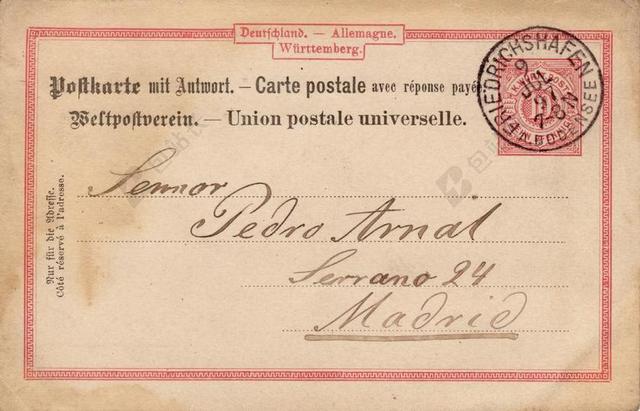 Deutschland. — Allemagne.
Württemberg.
Postkarte mit Antwort. — Carte postale avec réponse payé
Weltpostverein. — Union postale universelle.
FRIEDRICHSHAFEN
9
JUN
7-8 N
A. BODENSEE
Nur für die Adresse.
Côté réservé à l'adresse.
Sennor
Pedro Arnál
Serrano 24
Madrid